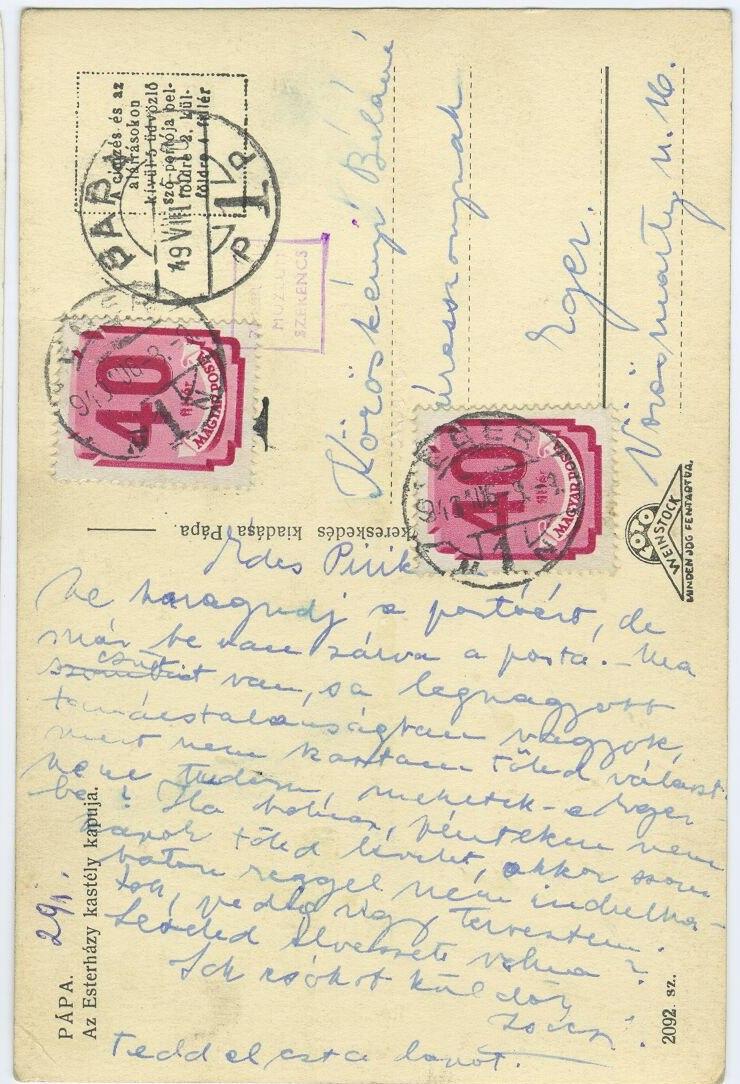 A címzés és az
aláírásokon
kívül 5 üdvözlő
szó portója bel-
földre 2, kül-
földre 4 fillér
PÁPA
49 VIII
1
P P
MUZEUM
SZERENCS
40
fillér
MAGYAR POSTA
EGER
1
40
fillér
MAGYAR POSTA
EGER
1
Kőröskényi Béláné
úrasszonynak
Eger.
Vörösmarty u. 16.
kereskedés kiadása Pápa.
FOTO
WEINSTOCK
MINDEN JOG FENTARTVA.
Édes Pirik
ne haragudj a portóért, de
már be van zárva a posta. – Ma
csüt van, s a legnagyobb
tanácstalanságban vagyok,
mert nem kaptam tőled választ
nem tudom, mehetek-e Eger-
be? Ha holnap, pénteken nem
kapok tőled levelet, akkor szom
baton reggel nem indulha-
tok, pedig úgy terveztem.
Leveled elveszett volna?
Sok csókot küld
Tedd el ezt a lapot.
29.
PÁPA.
Az Esterházy kastély kapuja.
2092. sz.